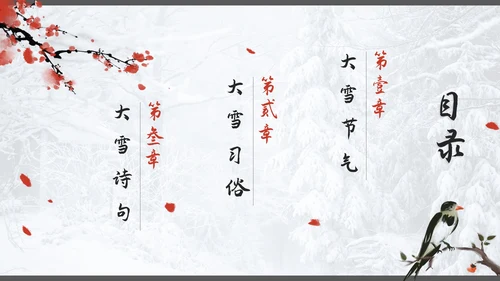 目录
第壹章
大雪节气
第贰章
大雪习俗
第叁章
大雪诗句